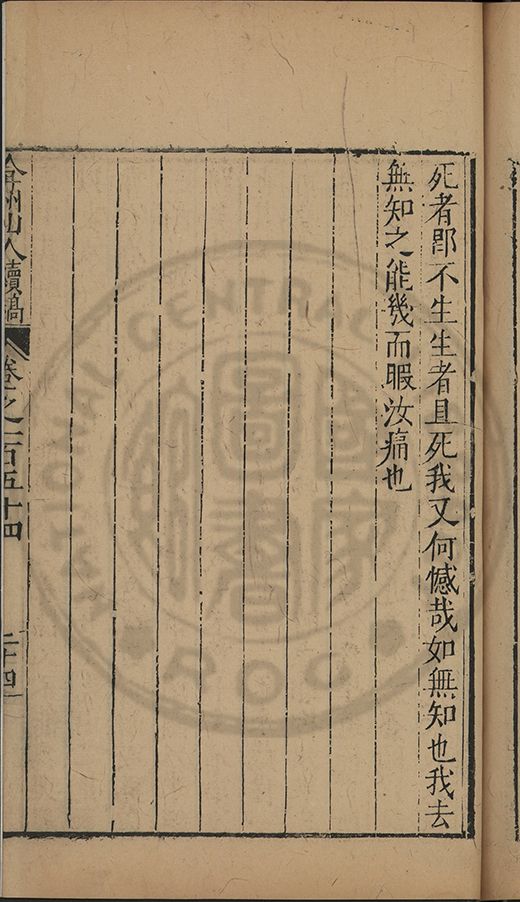 死者郡不生生者且死我又何憾哉如無知也我去
無知之能幾而暇汝痛也
弇州山人續稿
卷之一百五十四
二十四